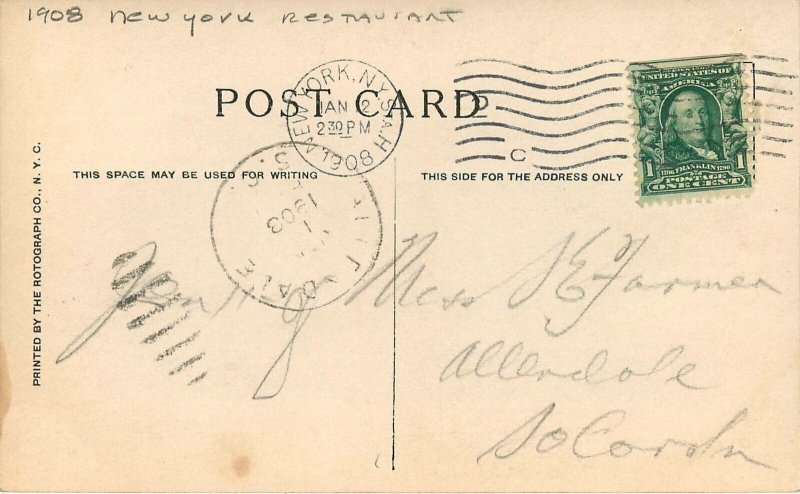 1908 New York Restaurant
POST CARD
NEW YORK, N.Y. STA. H
JAN 2
2 30 PM
1908
C
UNITED STATES OF AMERICA
1 1
1706 FRANKLIN 1790
POSTAGE
ONE CENT
THIS SPACE MAY BE USED FOR WRITING
THIS SIDE FOR THE ADDRESS ONLY
1903
PRINTED BY THE ROTOGRAPH CO., N. Y. C.
Miss S E Farmer
Allendale
So Carolin